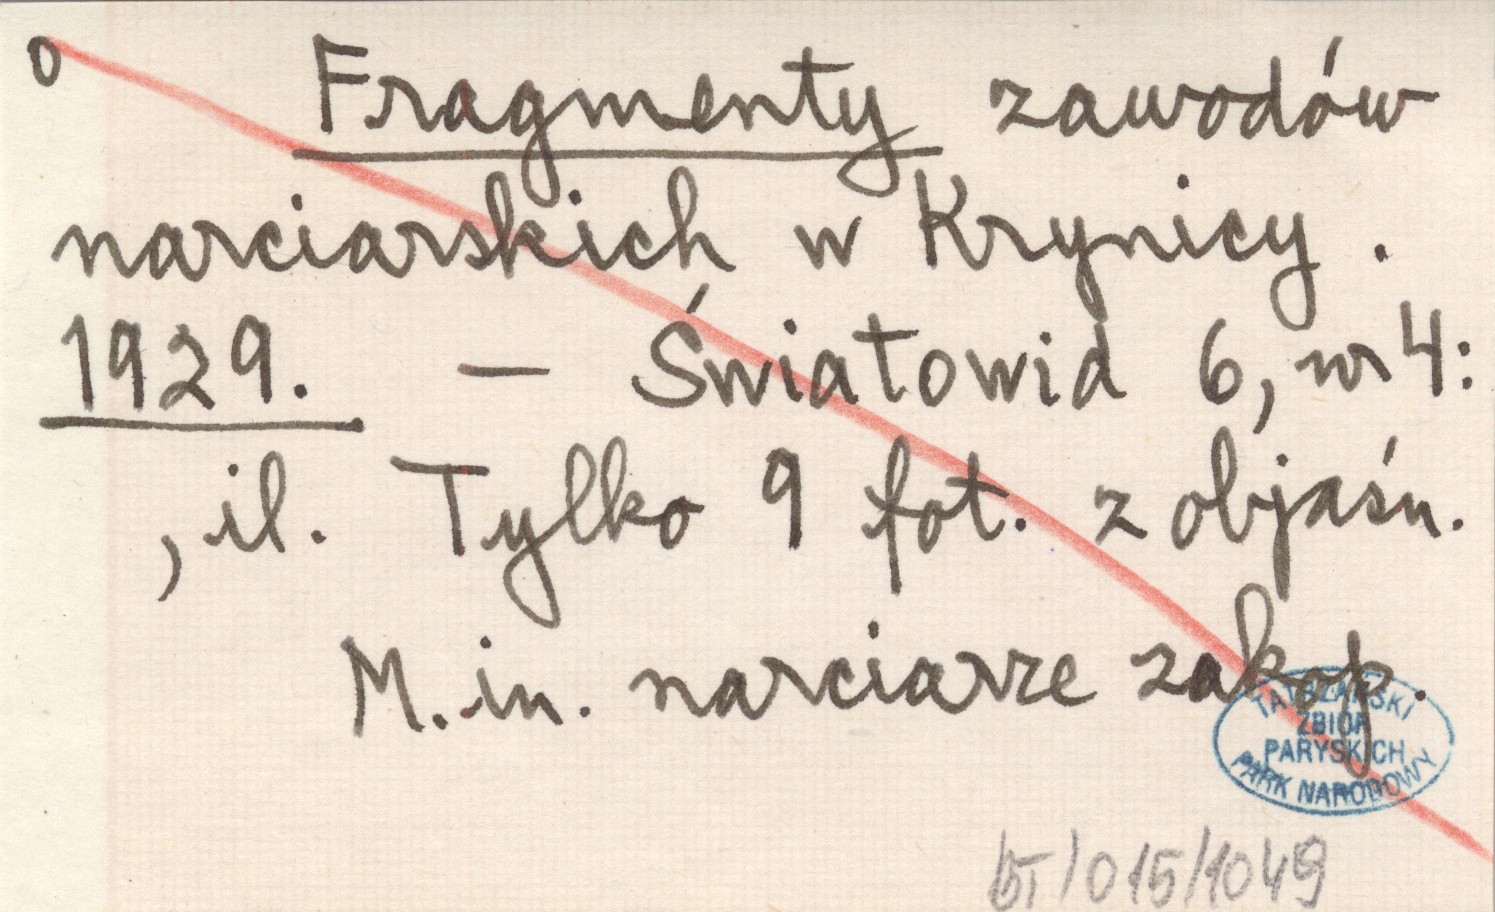 o Fragmenty zawodów
narciarskich w Krynicy.
1929. — Światowid 6, nr 4:
, il. Tylko 9 fot. z objaśn.
M. in. narciarze zakop.
TATRZAŃSKI
ZBIOR
PARYSKICH
PARK NARODOWY
/015/1049